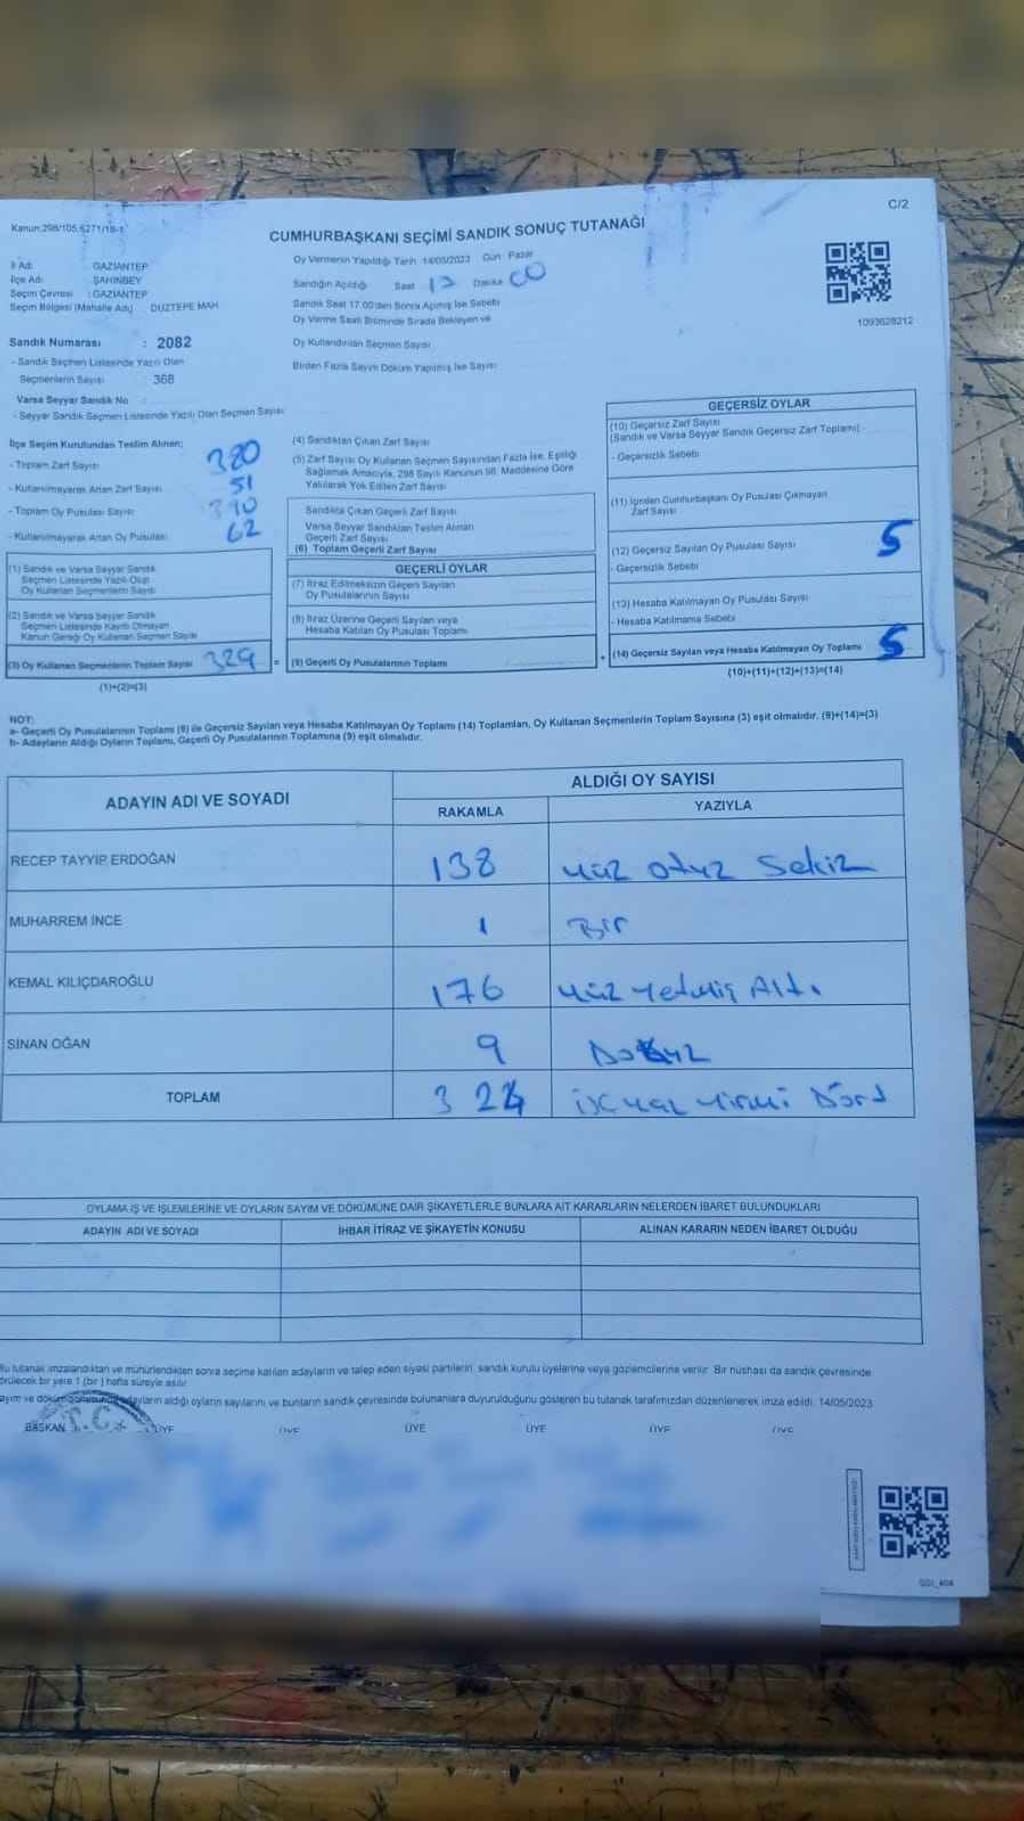 C/2
Kanun:298/105,6271/18-1
CUMHURBAŞKANI SEÇİMİ SANDIK SONUÇ TUTANAĞI
İl Adı : GAZİANTEP
İlçe Adı : ŞAHİNBEY
Seçim Çevresi : GAZİANTEP
Seçim Bölgesi (Mahalle Adı) DÜZTEPE MAH
Oy Vermenin Yapıldığı Tarih 14/05/2023 Gün Pazar
Sandığın Açıldığı Saat Dakika 00
Sandık Saat 17:00'den Sonra Açılmış İse Sebebi
Oy Verme Saati Bitiminde Sırada Bekleyen ve
Oy Kullandırılan Seçmen Sayısı
Birden Fazla Sayım Döküm Yapılmış İse Sayısı
1093628212
Sandık Numarası : 2082
- Sandık Seçmen Listesinde Yazılı Olan
Seçmenlerin Sayısı 368
Varsa Seyyar Sandık No
- Seyyar Sandık Seçmen Listesinde Yazılı Olan Seçmen Sayısı
İlçe Seçim Kurulundan Teslim Alınan;
- Toplam Zarf Sayısı 380
- Kullanılmayarak Artan Zarf Sayısı 51
- Toplam Oy Pusulası Sayısı 390
- Kullanılmayarak Artan Oy Pusulası 62
(1) Sandık ve Varsa Seyyar Sandık
Seçmen Listesinde Yazılı Olup
Oy Kullanan Seçmenlerin Sayısı
(2) Sandık ve Varsa Seyyar Sandık
Seçmen Listesinde Kayıtlı Olmayan
Kanun Gereği Oy Kullanan Seçmen Sayısı
(3) Oy Kullanan Seçmenlerin Toplam Sayısı 329 =
(1)+(2)=(3)
(4) Sandıktan Çıkan Zarf Sayısı
(5) Zarf Sayısı Oy Kullanan Seçmen Sayısından Fazla İse, Eşitliği
Sağlamak Amacıyla, 298 Sayılı Kanunun 98. Maddesine Göre
Yakılarak Yok Edilen Zarf Sayısı
Sandıkta Çıkan Geçerli Zarf Sayısı
Varsa Seyyar Sandıktan Teslim Alınan
Geçerli Zarf Sayısı
(6) Toplam Geçerli Zarf Sayısı
GEÇERLİ OYLAR
(7) İtiraz Edilmeksizin Geçerli Sayılan
Oy Pusulalarının Sayısı
(8) İtiraz Üzerine Geçerli Sayılan veya
Hesaba Katılan Oy Pusulası Toplamı
(9) Geçerli Oy Pusulalarının Toplamı +
GEÇERSİZ OYLAR
(10) Geçersiz Zarf Sayısı
(Sandık ve Varsa Seyyar Sandık Geçersiz Zarf Toplamı)
- Geçersizlik Sebebi
(11) İçinden Cumhurbaşkanı Oy Pusulası Çıkmayan
Zarf Sayısı
(12) Geçersiz Sayılan Oy Pusulası Sayısı 5
- Geçersizlik Sebebi
(13) Hesaba Katılmayan Oy Pusulası Sayısı
- Hesaba Katılmama Sebebi
(14) Geçersiz Sayılan veya Hesaba Katılmayan Oy Toplamı 5
(10)+(11)+(12)+(13)=(14)
NOT:
a- Geçerli Oy Pusulalarının Toplamı (9) ile Geçersiz Sayılan veya Hesaba Katılmayan Oy Toplamı (14) Toplamları, Oy Kullanan Seçmenlerin Toplam Sayısına (3) eşit olmalıdır. (9)+(14)=(3)
b- Adayların Aldığı Oyların Toplamı, Geçerli Oy Pusulalarının Toplamına (9) eşit olmalıdır.
ADAYIN ADI VE SOYADI
ALDIĞI OY SAYISI
RAKAMLA YAZIYLA
RECEP TAYYİP ERDOĞAN 138 yüz otuz sekiz
MUHARREM İNCE 1 Bir
KEMAL KILIÇDAROĞLU 176 yüz yetmiş Altı
SİNAN OĞAN 9 Dokuz
TOPLAM 324 üçyüz yirmi Dört
OYLAMA İŞ VE İŞLEMLERİNE VE OYLARIN SAYIM VE DÖKÜMÜNE DAİR ŞİKAYETLERLE BUNLARA AİT KARARLARIN NELERDEN İBARET BULUNDUKLARI
ADAYIN ADI VE SOYADI İHBAR İTİRAZ VE ŞİKAYETİN KONUSU ALINAN KARARIN NEDEN İBARET OLDUĞU
Bu tutanak imzalandıktan ve mühürlendikten sonra seçime katılan adayların ve talep eden siyasi partilerin sandık kurulu üyelerine veya gözlemcilerine verilir. Bir nüshası da sandık çevresinde
görülecek bir yere 1 (bir) hafta süreyle asılır.
adayların aldığı oyların sayılarını ve bunların sandık çevresinde bulunanlara duyurulduğunu gösteren bu tutanak tarafımızdan düzenlenerek imza edildi. 14/05/2023
BAŞKAN T.C. ÜYE ÜYE ÜYE ÜYE ÜYE ÜYE